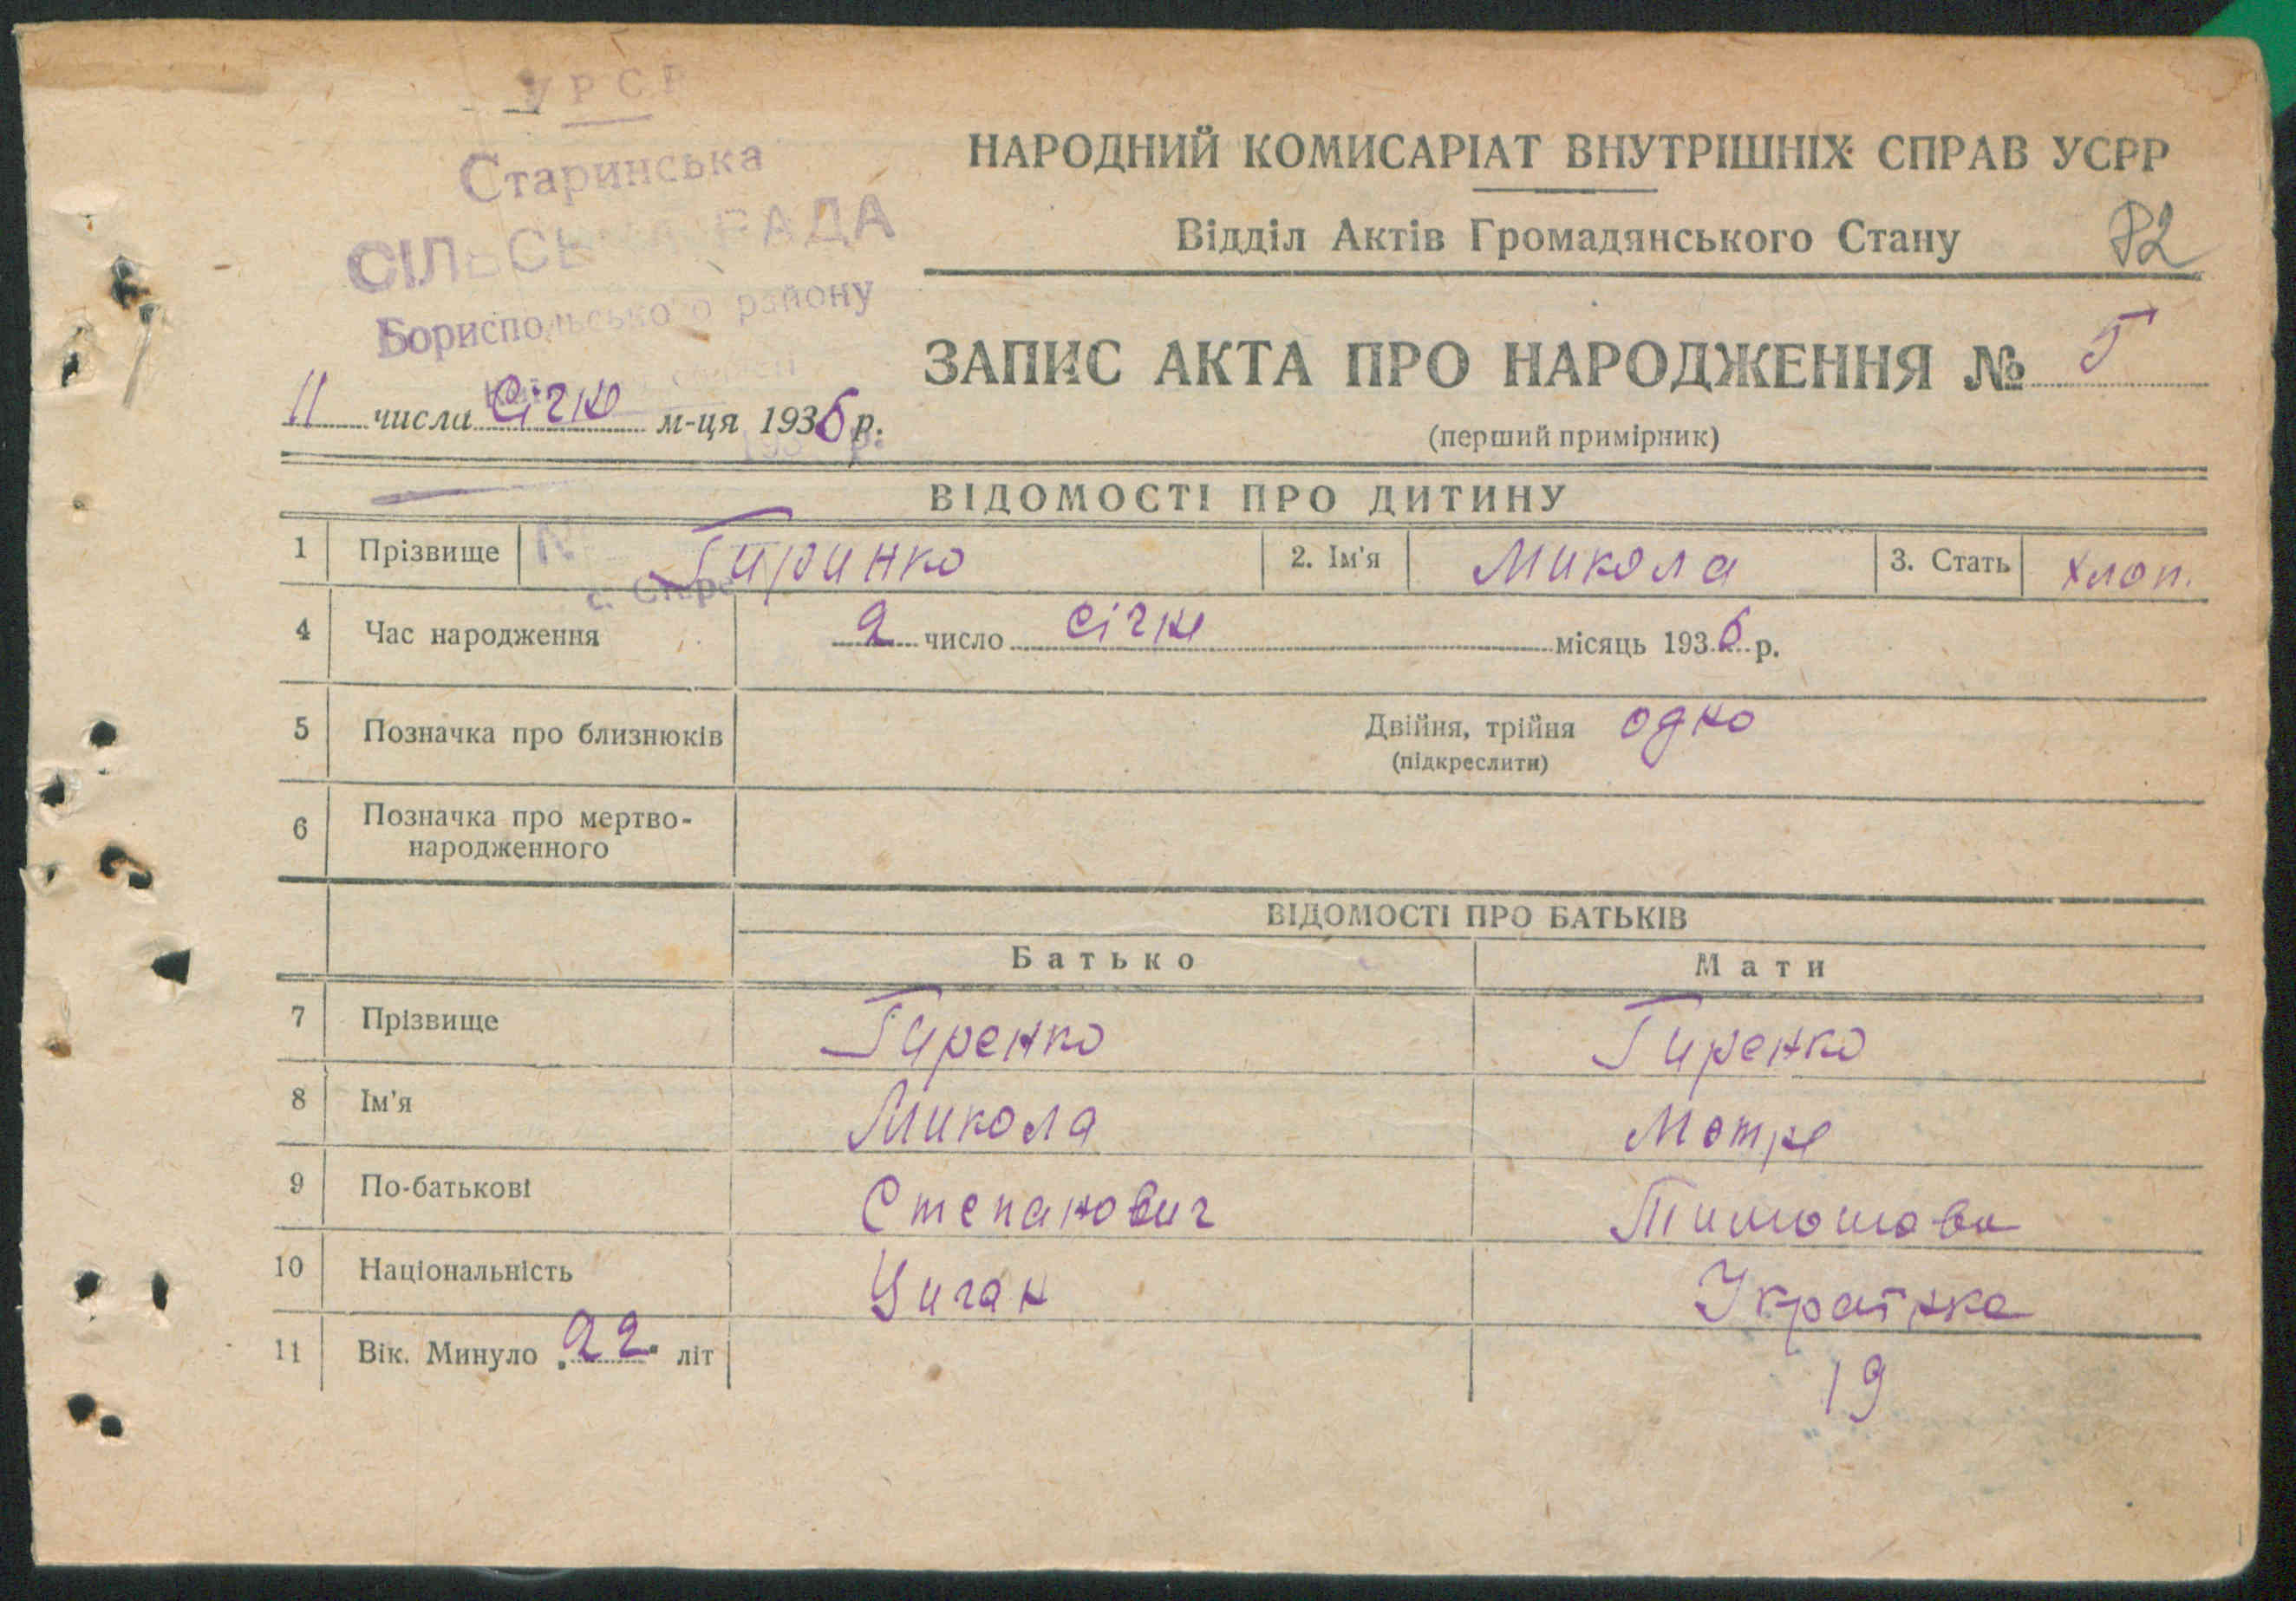 УРСР
Старинська
СІЛЬСЬКА РАДА
Бориспольського району
11 числа січня м-ця 1936 р.
НАРОДНИЙ КОМИСАРІАТ ВНУТРІШНІХ СПРАВ УСРР
Відділ Актів Громадянського Стану 82
ЗАПИС АКТА ПРО НАРОДЖЕННЯ № 5
(перший примірник)
ВІДОМОСТІ ПРО ДИТИНУ
1 Прізвище Гиринко 2. Ім'я Микола 3. Стать хлоп.
4 Час народження 2 число січня місяць 1936 р.
5 Позначка про близнюків Двійня, трійня одно
(підкреслити)
6 Позначка про мертво-
народженного
ВІДОМОСТІ ПРО БАТЬКІВ
Батько Мати
7 Прізвище Гиренко Гиренко
8 Ім'я Микола Мотря
9 По-батькові Степанович Тимошова
10 Національність Циган Українка
11 Вік. Минуло 22 літ 19